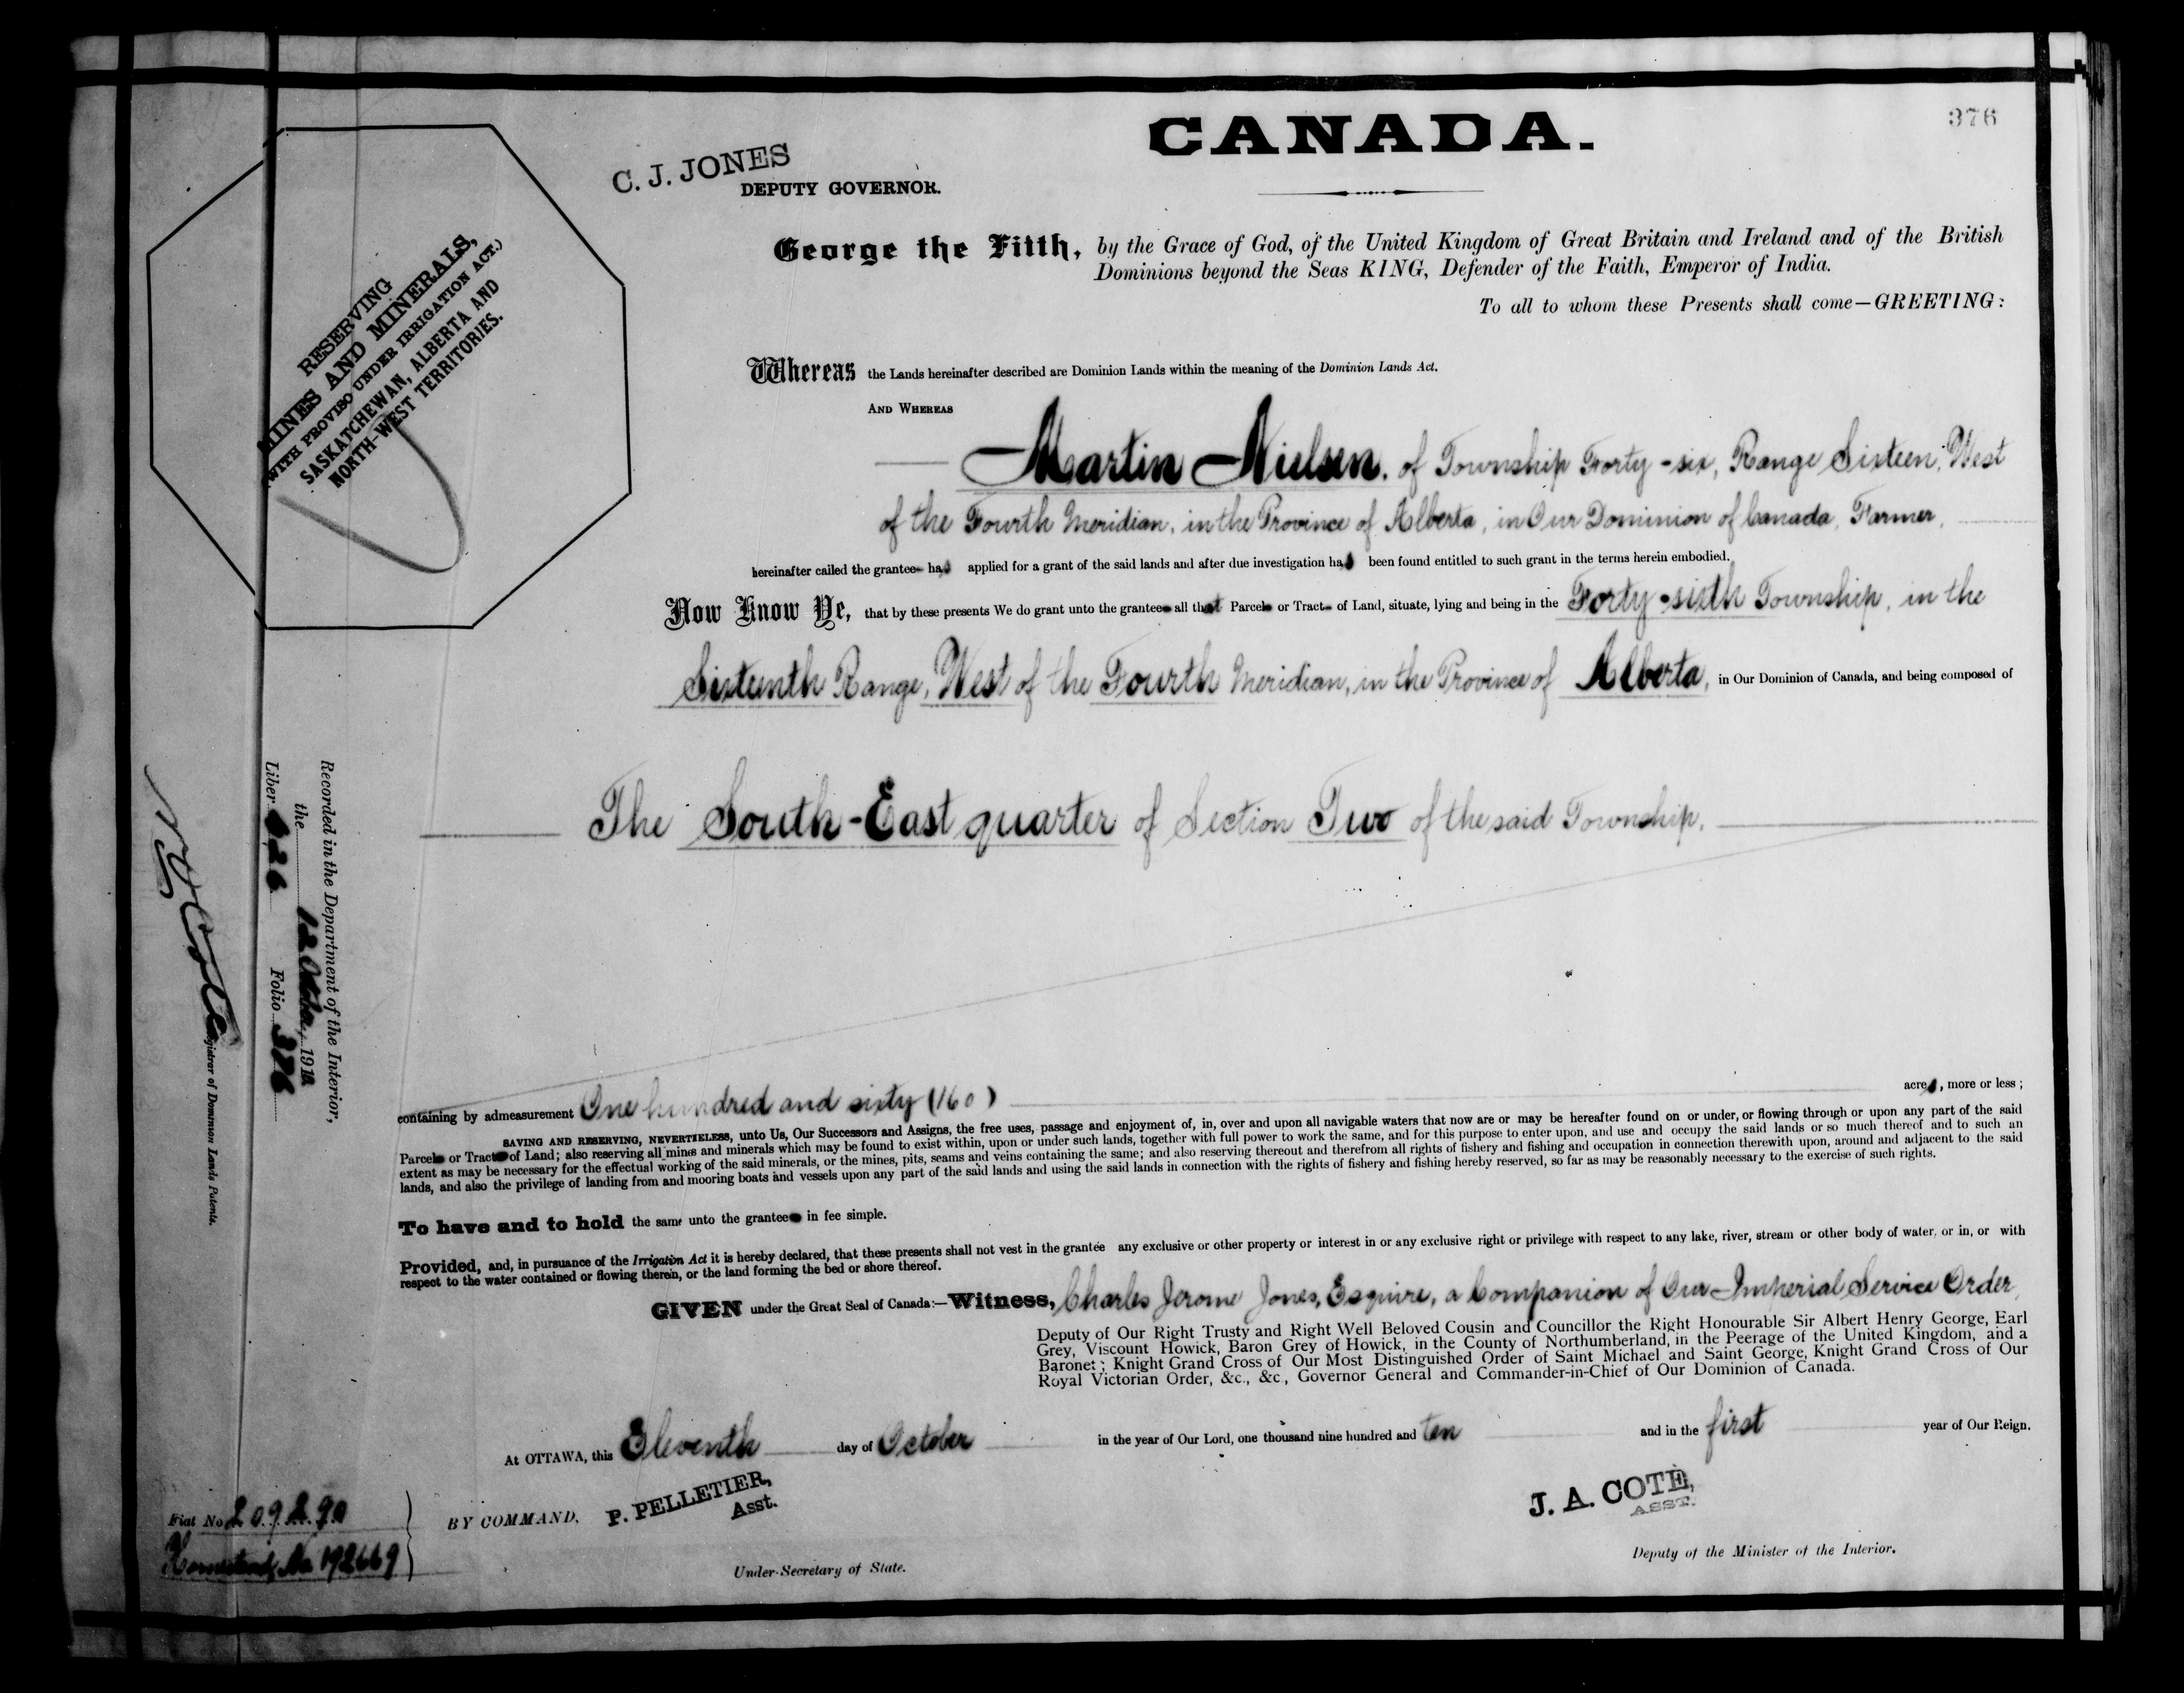 376
CANADA.
C. J. JONES
DEPUTY GOVERNOR.
George the Fifth, by the Grace of God, of the United Kingdom of Great Britain and Ireland and of the British
Dominions beyond the Seas KING, Defender of the Faith, Emperor of India.
To all to whom these Presents shall come—GREETING:
RESERVING
MINES AND MINERALS,
(WITH PROVISO UNDER IRRIGATION ACT.)
SASKATCHEWAN, ALBERTA AND
NORTH-WEST TERRITORIES.
Whereas the Lands hereinafter described are Dominion Lands within the meaning of the Dominion Lands Act.
AND WHEREAS
Martin Nielsen, of Township Forty-six, Range Sixteen, West
of the Fourth Meridian, in the Province of Alberta, in Our Dominion of Canada, Farmer,
hereinafter called the grantee has applied for a grant of the said lands and after due investigation has been found entitled to such grant in the terms herein embodied.
Now Know Ye, that by these presents We do grant unto the grantee all that Parcel or Tract of Land, situate, lying and being in the Forty-sixth Township, in the
Sixteenth Range, West of the Fourth Meridian, in the Province of Alberta, in Our Dominion of Canada, and being composed of
The South-East quarter of Section Two of the said Township.
Recorded in the Department of the Interior,
the 12 October, 1910
Liber 626 Folio 376
Registrar of Dominion Lands Patents.
containing by admeasurement One hundred and sixty (160) acres, more or less;
SAVING AND RESERVING, NEVERTHELESS, unto Us, Our Successors and Assigns, the free uses, passage and enjoyment of, in, over and upon all navigable waters that now are or may be hereafter found on or under, or flowing through or upon any part of the said
Parcel or Tract of Land; also reserving all mines and minerals which may be found to exist within, upon or under such lands, together with full power to work the same, and for this purpose to enter upon, and use and occupy the said lands or so much thereof and to such an
extent as may be necessary for the effectual working of the said minerals, or the mines, pits, seams and veins containing the same; and also reserving thereout and therefrom all rights of fishery and fishing and occupation in connection therewith upon, around and adjacent to the said
lands, and also the privilege of landing from and mooring boats and vessels upon any part of the said lands and using the said lands in connection with the rights of fishery and fishing hereby reserved, so far as may be reasonably necessary to the exercise of such rights.
To have and to hold the same unto the grantee in fee simple.
Provided, and, in pursuance of the Irrigation Act it is hereby declared, that these presents shall not vest in the grantee any exclusive or other property or interest in or any exclusive right or privilege with respect to any lake, river, stream or other body of water, or in, or with
respect to the water contained or flowing therein, or the land forming the bed or shore thereof.
GIVEN under the Great Seal of Canada:—Witness, Charles Jerome Jones, Esquire, a Companion of Our Imperial Service Order,
Deputy of Our Right Trusty and Right Well Beloved Cousin and Councillor the Right Honourable Sir Albert Henry George, Earl
Grey, Viscount Howick, Baron Grey of Howick, in the County of Northumberland, in the Peerage of the United Kingdom, and a
Baronet; Knight Grand Cross of Our Most Distinguished Order of Saint Michael and Saint George, Knight Grand Cross of Our
Royal Victorian Order, &c., &c., Governor General and Commander-in-Chief of Our Dominion of Canada.
At OTTAWA, this Eleventh day of October in the year of Our Lord, one thousand nine hundred and ten and in the first year of Our Reign.
Fiat No 209290
Homestead No 192669
BY COMMAND, P. PELLETIER,
Asst.
Under-Secretary of State.
J. A. COTE,
ASST.
Deputy of the Minister of the Interior.